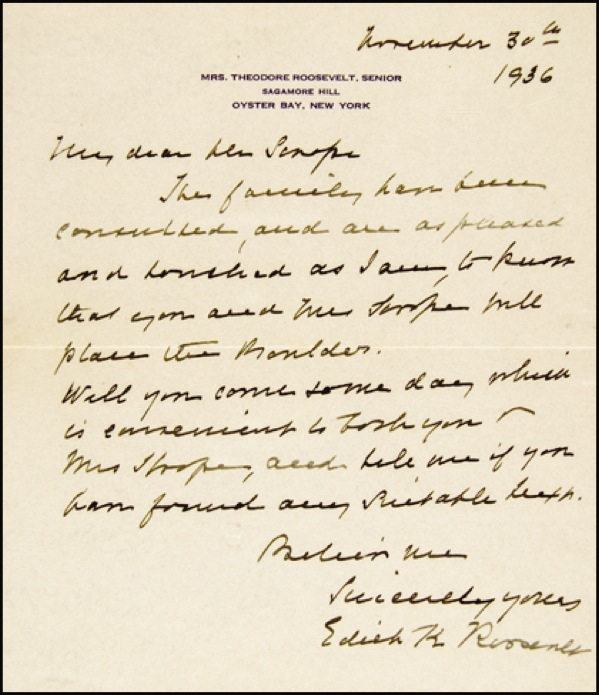 November 30th
1936
MRS. THEODORE ROOSEVELT, SENIOR
SAGAMORE HILL
OYSTER BAY, NEW YORK
My dear Mr
The family have been
consulted, and are as pleased
and touched as I am, to know
that you and Mrs will
place the Boulder.
Will you come some day which
is convenient to both you &
Mrs and tell me if you
have found any suitable text.
Believe me
Sincerely yours
Edith K. Roosevelt